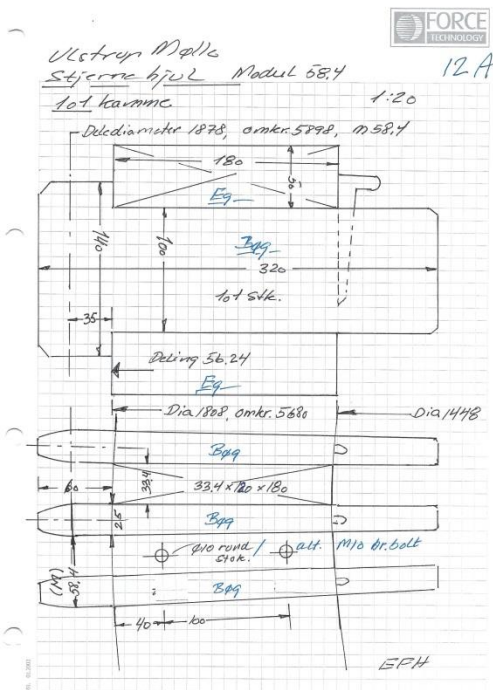 FORCE
TECHNOLOGY
12A
Ulstrup Mølle
Stjernehjul Modul 58.4
101 kamme
1:20
Delediameter 1878, omkr. 5898, m 58.4
180
Eg
140
100
Bøg
320
101 stk.
35
Deling 56.24
Eg
Dia 1808, omkr. 5680
Dia 1448
Bøg
60
33.4
33.4 x 120 x 180
25
Bøg
ø10 rund stok. / alt. M10 br. bolt
(M)
58.4
Bøg
40
100
EPH